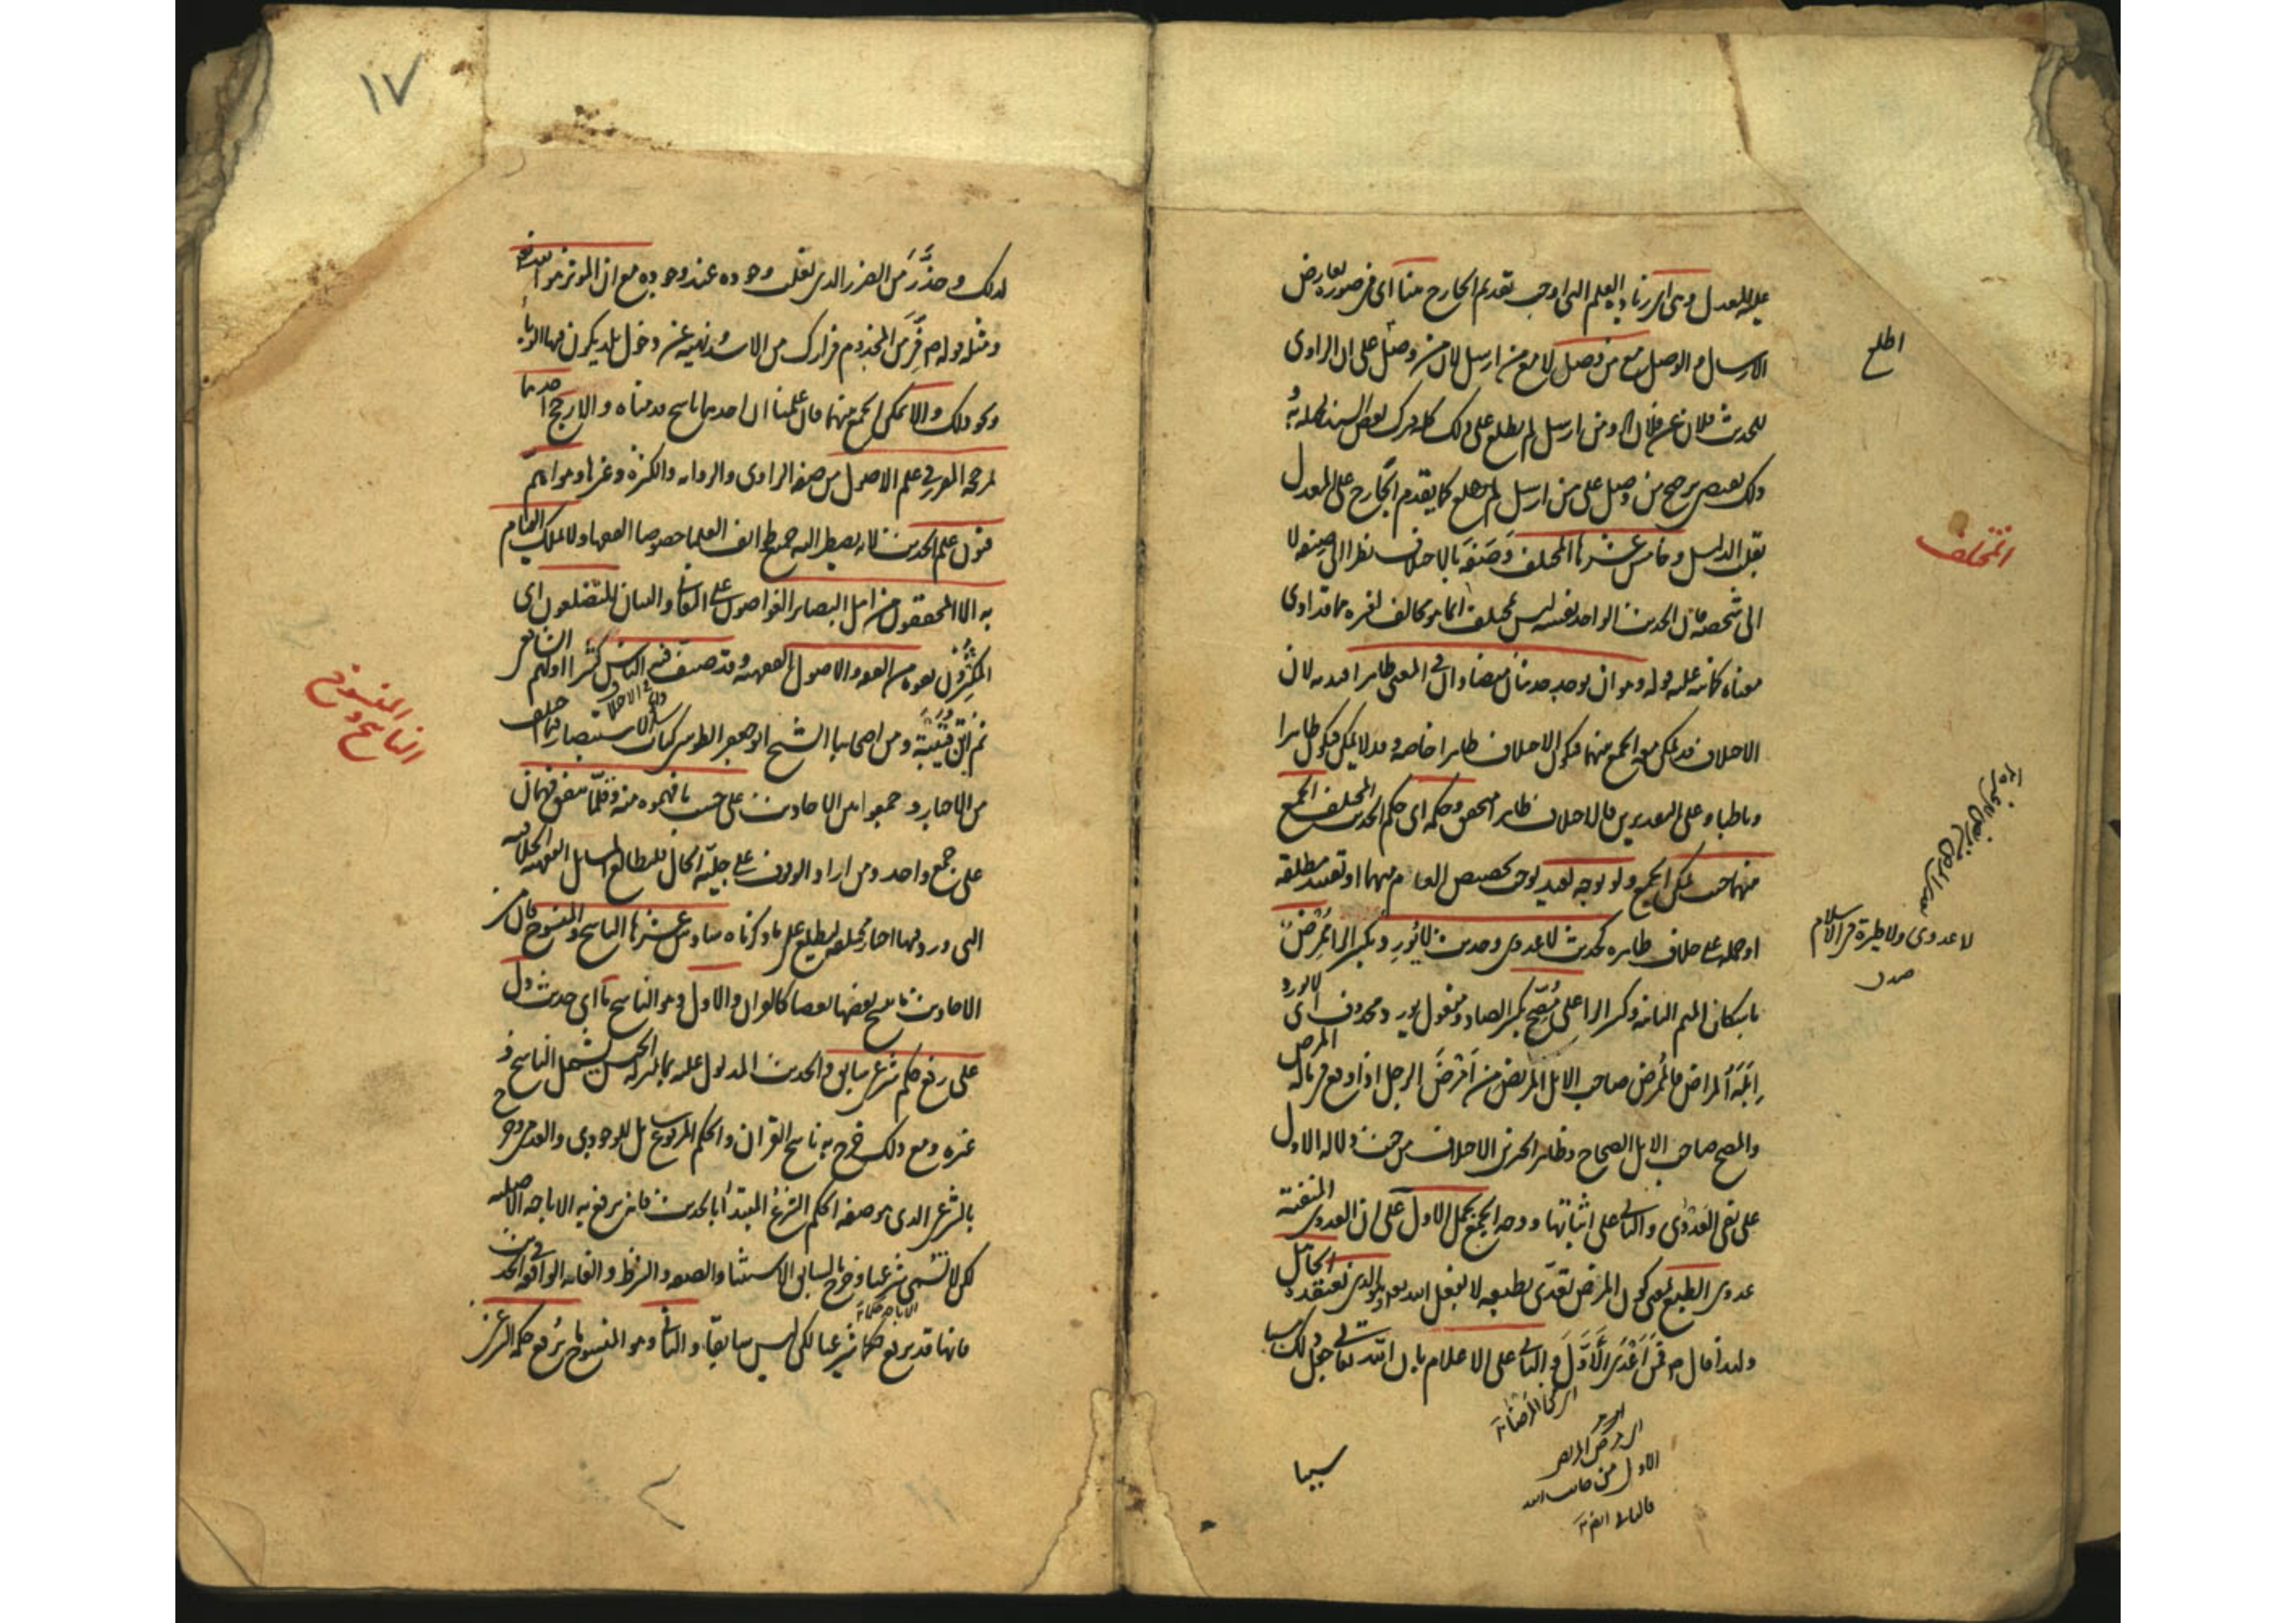 عليه المعدل وهي اي زيادة العلم التي اوجبت تقديم الجارح هنا اي في صوره تعارض
الارسال و الوصل مع من وصل لا مع من ارسل لان من وصل اطلع على ان الراوي
للحديث فلان عن فلان الخ ومن ارسل لم يطلع على ذلك كله فترك بعض السند لجهله به
وذلك يقتضي ترجيح من وصل على من ارسل كما يقدم الجارح على المعدل
بقلب الدليل وخامس عشرها المختلف وَصَفَه بالاختلاف نظرا الى صنفه لا
الى شخصه فان الحديث الواحد نفسه ليس بمختلف انما هو مخالف لغيره مما قد ادى
معناه كما نبه عليه بقوله وهو ان يوجد حديثان متضادان في المعنى ظاهرا قيد به لان
الاختلاف قد يمكن معه الجمع بينهما فيكون الاختلاف ظاهرا خاصة وقد لا يمكن فيكون ظاهرا
وباطنا وعلى التقديرين فالاختلاف ظاهر متحقق وحكمه اي حكم الحديث المختلف الجمع
بينهما حيث يمكن الجمع ولو بوجه بعيد يوجب تخصيص العام منهما او تقييد مطلقه
او حمله على خلاف ظاهره كحديث لا عدوى وحديث لا يُورِد بكسر الراء مُمْرِضٌ
باسكان الميم الثانية وكسر الراء على مُصِحّ بكسر الصاد ومفعول يورد محذوف اي لا يورد
اِبِلَهُ المراض فالممرض صاحب الابل المريض من اَمْرَضَ الرجل اذا وقع في ماله المرض
والمصح صاحب الابل الصحاح وظاهر الخبرين الاختلاف من حيث دلاله الاول
على نفي العَدْوَى والثاني على اثباتها ووجه الجمع بحمل الاول على ان العدوى المنفية
عدوى الطبع بمعنى كون المرض تعدّى بطبعه لا بفعل الله تعالى وهو الذي يعتقده الجاهل
ولهذا قال ص فَمَن اَعْدَى الاَوَّلَ والثاني على الاعلام بان الله تعالى جعل ذلك سببا
اطلع
المختلف
لا عدوى ولا طيرة في الاسلام
سببا
١٧
لذلك وحذَّر مَن الضرر الذي يغلب وجوده عند وجوده مع ان المؤثر هو الله تعالى
ومثله قوله ص فِرَّ مَن المجذوم فرارك من الاسد ونهيه عن دخول بلد يكون فيها الوباء
ونحو ذلك والا يمكن الجمع بينهما فان علمنا ان احدهما ناسخ قدمناه والا رجح احدهما
بمرجحه المقرر في علم الاصول من صفه الراوي والروايه والكثره وغيرها وهو اهمّ
فنون علم الحديث لانه يضطر اليه جميع طوائف العلماء خصوصا الفقهاء ولا يملك القيام
به الا المحققون من اهل البصائر الغواصون على المعاني والبيان المتضلعون اي
المُكثِرون بقوه من الفقه والاصول الفقهيه وقد صنف فيه الناس كثيرا اولهم الشافعي
ثم ابن قُتَيْبَة ومن اصحابنا الشيخ ابو جعفر الطوسي كتاب الاستبصار فيما اختلف
من الاخبار وجمعوا بين الاحاديث على حسب ما فهموه منه وقلّما يتفق فهمان
على جمع واحد ومن اراد الوقوف على جليّة الحال فليطالع المسائل الفقهيه الخلافيه
التي ورد فيها اخبار مختلفه يطلع على ما ذكرناه سادس عشرها الناسخ والمنسوخ فان من
الاحاديث ما ينسخ بعضها بعضا كالقران والاول وهو الناسخ ما اي حديث دل
على رفع حكم شرعي سابق فالحديث المدلول عليه بما بمنزله الجنس يشمل الناسخ و
غيره ومع ذلك خرج به ناسخ القران والحكم المرفوع شامل للوجودي والعدمي وخرج
بالشرعي الذي هو صفه الحكم الشرع المبتدأ بالحديث فانه يرفع به الاباحه الاصليه
لكن لا تسمى شرعيا وخرج بالسابق الاستثناء والصفه والشرط والغايه الواقعه في الحديث
فانها قد ترفع حكما شرعيا لكن ليس سابقا والثاني وهو المنسوخ ما رُفع حكمه الشرعي
الناسخ و
المنسوخ